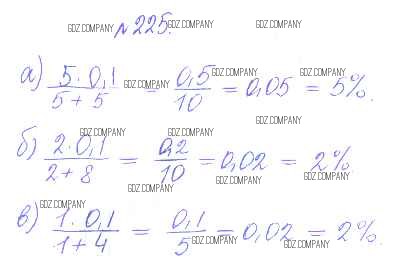 GDZ.COMPANY №225. GDZ.COMPANY GDZ.COMPANY
а) 5·0,1 / 5+5 = 0,5 / 10 = 0,05 = 5%.
GDZ.COMPANY GDZ.COMPANY GDZ.COMPANY
GDZ.COMPANY
GDZ.COMPANY GDZ.COMPANY
б) 2·0,1 / 2+8 = 0,2 / 10 = 0,02 = 2%.
GDZ.COMPANY GDZ.COMPANY GDZ.COMPANY
GDZ.COMPANY
в) 1·0,1 / 1+4 = 0,1 / 5 = 0,02 = 2%.
GDZ.COMPANY GDZ.COMPANY